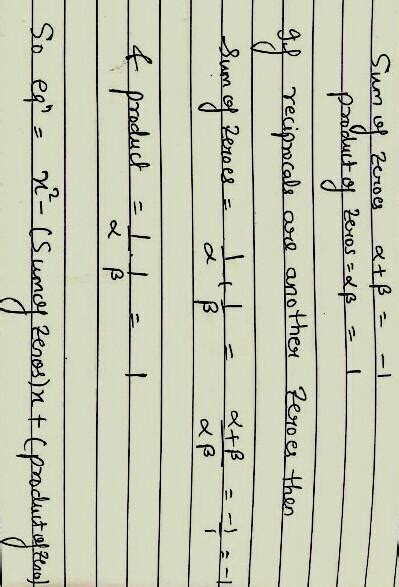 Sum of zeroes α+β = -1
product of zeros = αβ = 1
If reciprocals are another zeroes then
Sum of zeroes = 1/α + 1/β = α+β/αβ = -1/1 = -1
& product = 1/α 1/β = 1
So eqⁿ = x² - (Sum of zeros)x + (product of zero)